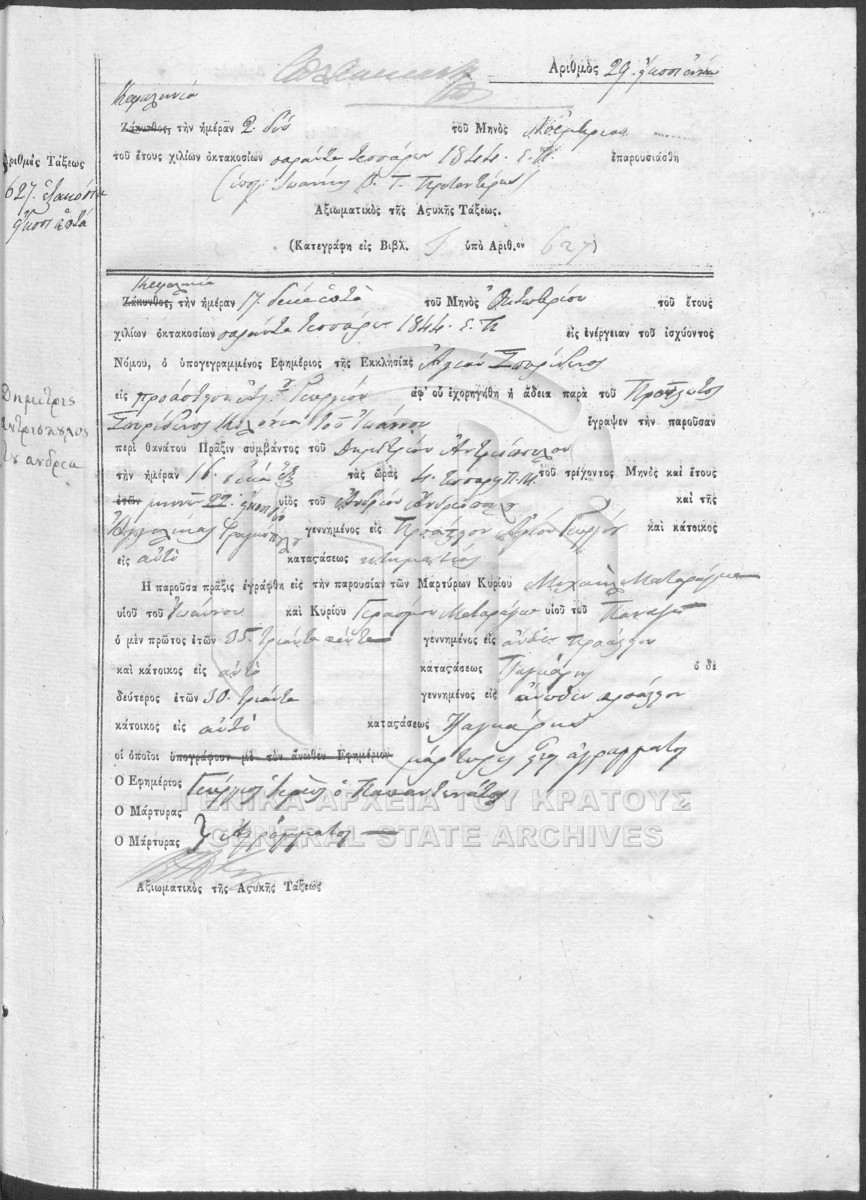 Ἀριθμὸς 29. εἴκοσι ἐννέα
Κεφαληνία
Ζάκυνθος, τὴν ἡμέραν 2. δύο τοῦ Μηνὸς Νοεμβρίου
τοῦ ἔτους χιλίων ὀκτακοσίων σαράντα τεσσάρων 1844. Ε. Π. ἐπαρουσιάσθη
Ἀξιωματικὸς τῆς Ἀςυκῆς Τάξεως.
(Κατεγράφη εἰς Βιβλ. ὑπὸ Ἀριθ.ον 627)
Ἀριθμὸς Τάξεως
627. ἑξακόσια
εἴκοσι ἑπτά
Κεφαληνία
Ζάκυνθος, τὴν ἡμέραν 17. δεκαεπτὰ τοῦ Μηνὸς Ὀκτωβρίου τοῦ ἔτους
χιλίων ὀκτακοσίων σαράντα τεσσάρων 1844. Ε. Π. εἰς ἐνέργειαν τοῦ ἰσχύοντος
Νόμου, ὁ ὑπογεγραμμένος Ἐφημέριος τῆς Ἐκκλησίας Ἁγίου Σπυρίδωνος
εἰς προάστειον Γεωργίου ἀφ' οὗ ἐχορηγήθη ἡ ἄδεια παρὰ τοῦ
Σπυρίδωνος τοῦ Ἰωάννου ἔγραψεν τὴν παροῦσαν
περὶ θανάτου Πρᾶξιν συμβάντος τοῦ Δημητρίου Ἀντριόπουλου
τὴν ἡμέραν 16. δεκαέξ τὰς ὥρας 4. τέσσαρες Π. Μ. τοῦ τρέχοντος Μηνὸς καὶ ἔτους
ἐτῶν μηνῶν 22. εἴκοσι δύο υἱὸς τοῦ Ἀνδρέου Ἀνδριόπουλου καὶ τῆς
γεννημένος εἰς Προάστειον Ἁγίου Γεωργίου καὶ κάτοικος
εἰς αὐτὸ καταςάσεως κτηματίας
Δημήτρις
αντριοπουλος
του ανδρεα
Ἡ παροῦσα πρᾶξις ἐγράφθη εἰς τὴν παρουσίαν τῶν Μαρτύρων Κυρίου Μιχαὴλ Ματαράγκα
υἱοῦ τοῦ Ἰωάννου καὶ Κυρίου Γερασίμου Ματαράγκα υἱοῦ τοῦ Παναγῆ
ὁ μὲν πρῶτος ἐτῶν 35. τριάντα πέντε γεννημένος εἰς ἄνωθεν προάστειον
καὶ κάτοικος εἰς αὐτὸ καταςάσεως ὁ δὲ
δεύτερος ἐτῶν 30. τριάντα γεννημένος εἰς ἄνωθεν προάστειον
κάτοικος εἰς αὐτὸ καταςάσεως
οἱ ὁποῖοι ὑπογράφουν μὲ τὸν ἄνωθεν Ἐφημέριον μάρτυρες εἶναι ἀγράμματοι
Ὁ Ἐφημέριος Γεώργιος ἱερεὺς ὁ
Ὁ Μάρτυρας
Ὁ Μάρτυρας } ἀγράμματοι
Ἀξιωματικὸς τῆς Ἀςυκῆς Τάξεως
ΓΕΝΙΚΑ ΑΡΧΕΙΑ ΤΟΥ ΚΡΑΤΟΥΣ
GENERAL STATE ARCHIVES